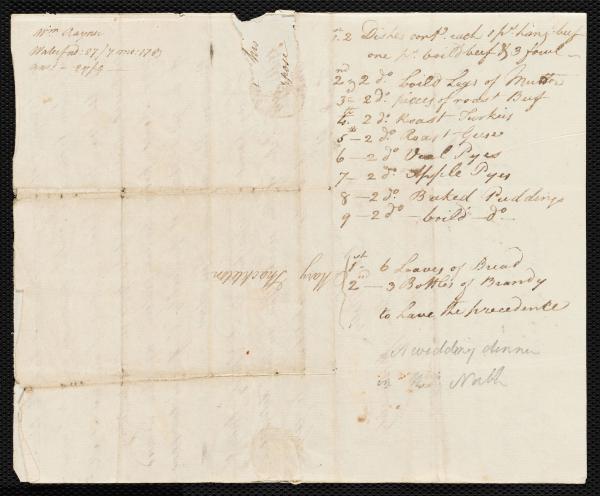 Wm Rayner
Waterford: 27/7 mo: 1783
ans: - 29/9 -
Mary Shackleton
1st. 2 Dishes cont.g each 1 ps. hang-beef
one ps. boild beef & 3 fowl -
2nd - 2 do. boild Legs of Mutton
3rd - 2 do. pieces of roast Beef
4th - 2 do. Roast Turkies
5th - 2 do. Roast Geese
6 - 2 do. Veal Pyes
7 - 2 do. Apple Pyes
8 - 2 do. Baked Puddings
9 - 2 do - boild - do -
1st - 6 Loaves of Bread
2nd - 3 Bottles of Brandy
to have the precedence
A wedding dinner
in the North